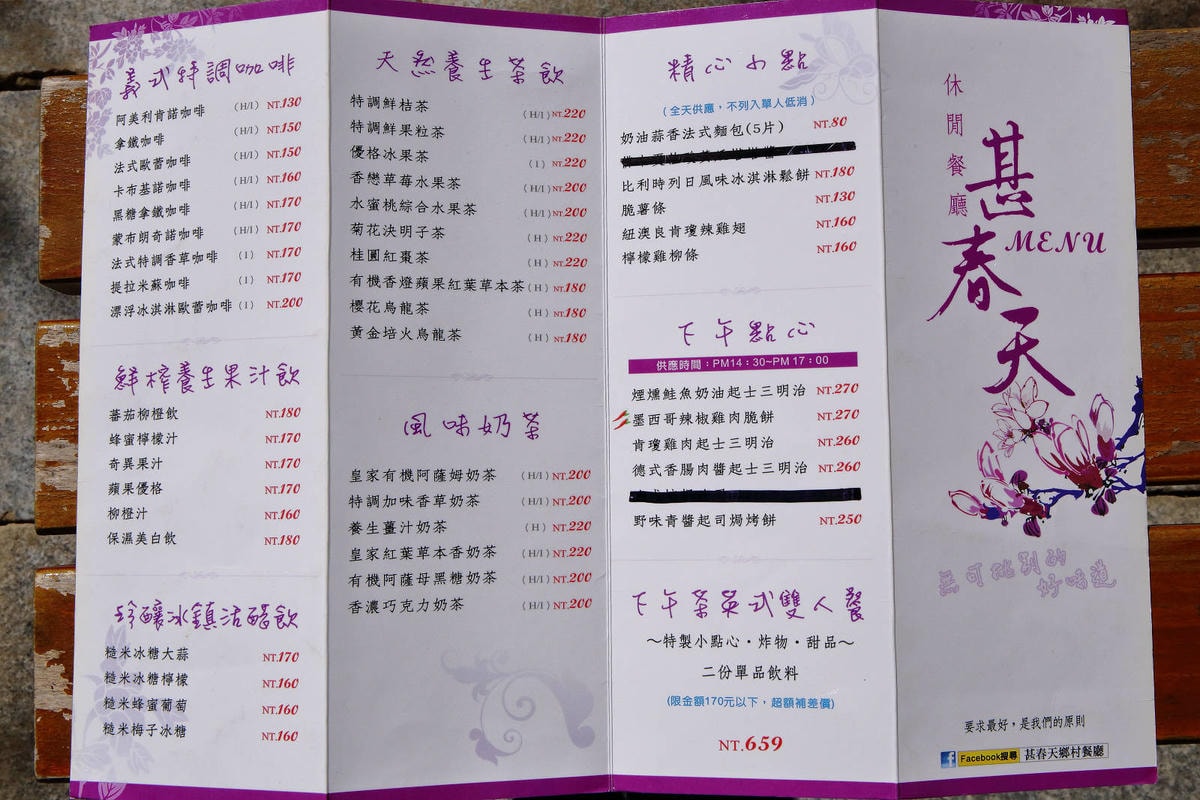 義式特調咖啡
阿美利肯諾咖啡 (H/I) NT.130
拿鐵咖啡 (H/I) NT.150
法式歐蕾咖啡 (H/I) NT.150
卡布基諾咖啡 (H/I) NT.160
黑糖拿鐵咖啡 (H/I) NT.170
蒙布朗奇諾咖啡 (H/I) NT.170
法式特調香草咖啡 (I) NT.170
提拉米蘇咖啡 (I) NT.170
漂浮冰淇淋歐蕾咖啡 (I) NT.200
鮮榨養生果汁飲
蕃茄柳橙飲 NT.180
蜂蜜檸檬汁 NT.170
奇異果汁 NT.170
蘋果優格 NT.170
柳橙汁 NT.160
保濕美白飲 NT.180
珍釀冰鎮活醋飲
糙米冰糖大蒜 NT.170
糙米冰糖檸檬 NT.160
糙米蜂蜜葡萄 NT.160
糙米梅子冰糖 NT.160
天然養生茶飲
特調鮮桔茶 (H/I) NT.220
特調鮮果粒茶 (H/I) NT.220
優格冰果茶 (I) NT.220
香戀草莓水果茶 (H/I) NT.200
水蜜桃綜合水果茶 (H/I) NT.200
菊花決明子茶 (H) NT.220
桂圓紅棗茶 (H) NT.220
有機香燈蘋果紅葉草本茶 (H) NT.180
櫻花烏龍茶 (H) NT.180
黃金培火烏龍茶 (H) NT.180
風味奶茶
皇家有機阿薩姆奶茶 (H/I) NT.200
特調加味香草奶茶 (H/I) NT.200
養生薑汁奶茶 (H) NT.220
皇家紅葉草本香奶茶 (H/I) NT.220
有機阿薩母黑糖奶茶 (H/I) NT.200
香濃巧克力奶茶 (H/I) NT.200
精心小點
(全天供應，不列入單人低消)
奶油蒜香法式麵包(5片) NT.80
比利時列日風味冰淇淋鬆餅 NT.180
脆薯條 NT.130
紐澳良肯瓊辣雞翅 NT.160
檸檬雞柳條 NT.160
下午點心
供應時間：PM14：30~PM 17：00
煙燻鮭魚奶油起士三明治 NT.270
墨西哥辣椒雞肉脆餅 NT.270
肯瓊雞肉起士三明治 NT.260
德式香腸肉醬起士三明治 NT.260
野味青醬起司焗烤餅 NT.250
下午茶英式雙人餐
～特製小點心・炸物・甜品～
二份單品飲料
(限金額170元以下，超額補差價)
NT.659
休閒餐廳
甚春天
MENU
無可挑剔的
好味道
要求最好，是我們的原則
f Facebook搜尋 甚春天鄉村餐廳